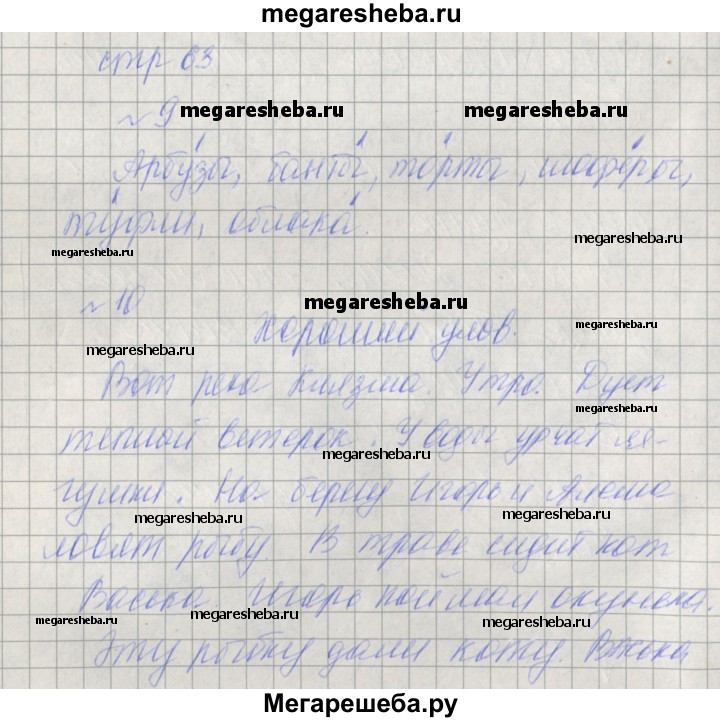 megaresheba.ru
стр 63
№ 9 megaresheba.ru megaresheba.ru
Арбу́зы, банты́, то́рты, шофёры,
ту́фли, облака́.
megaresheba.ru megaresheba.ru
№ 10 megaresheba.ru
Хороший улов.
megaresheba.ru megaresheba.ru
Вот река Клязма. Утро. Дует
megaresheba.ru
теплый ветерок. У воды урчат ля-
megaresheba.ru
гушки. На берегу Игорь и Алеша
megaresheba.ru megaresheba.ru
ловят рыбу. В траве сидит кот
Васька. Игорь поймал окунька.
megaresheba.ru megaresheba.ru megaresheba.ru
Эту рыбку дали коту.
Мегарешеба.ру